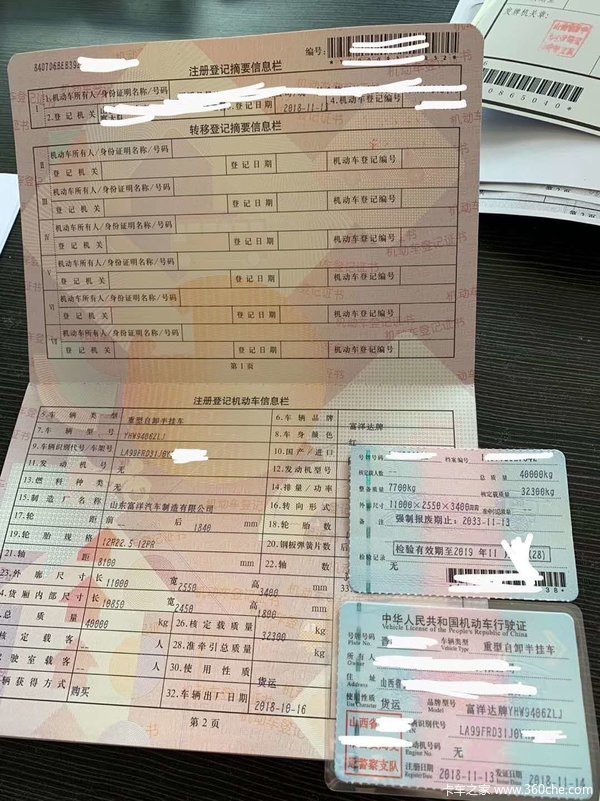 840706BEB39
编号:
注册登记摘要信息栏
I 1.机动车所有人/身份证明名称/号码
2.登记机关 3.登记日期 2018-11-13 4.机动车登记编号
转移登记摘要信息栏
II 机动车所有人/身份证明名称/号码
登记机关 登记日期 机动车登记编号
III 机动车所有人/身份证明名称/号码
登记机关 登记日期 机动车登记编号
IV 机动车所有人/身份证明名称/号码
登记机关 登记日期 机动车登记编号
V 机动车所有人/身份证明名称/号码
登记机关 登记日期 机动车登记编号
VI 机动车所有人/身份证明名称/号码
登记机关 登记日期 机动车登记编号
VII 机动车所有人/身份证明名称/号码
登记机关 登记日期 机动车登记编号
第1页
注册登记机动车信息栏
5.车辆类型 重型自卸半挂车 6.车辆品牌 富洋达牌
7.车辆型号 YHW9406ZLJ 8.车身颜色 红
9.车辆识别代号/车架号 LA99FRD31J 10.国产/进口
11.发动机号 无 12.发动机型号
13.燃料种类 无 14.排量/功率
15.制造厂名称 山东富洋汽车制造有限公司 16.转向形式
17.轮距 前 -- 后 1840 mm 18.轮胎数
19.轮胎规格 12R22.5 12PR 20.钢板弹簧片数
21.轴距 8100 mm 22.轴数
23.外廓尺寸 长 11000 宽 2550 高 3400 mm
24.货厢内部尺寸 长 10850 宽 2450 高 1800 mm
总质量 40000 kg 26.核定载质量 32300 kg
核定载客 -- 人 28.准牵引总质量 -- kg
驾驶室载客 -- 人 30.使用性质 货运
车辆获得方式 购买 32.车辆出厂日期 2018-10-16
第2页
发牌机关章:
00865010
第2页
号牌号码 档案编号
核定载人数 -- 总质量 40000kg
整备质量 7700kg 核定载质量 32300kg
外廓尺寸 11000×2550×3400mm 准牵引总质量 --
备注 强制报废期止:2033-11-13
检验记录 检验有效期至2019年11
无
中华人民共和国机动车行驶证
Vehicle License of the People's Republic of China
号牌号码 Plate No. 车辆类型 Vehicle Type 重型自卸半挂车
所有人 Owner
住址 Address 山西省
使用性质 Use Character 货运 品牌型号 Model 富洋达牌YHW9406ZLJ
山西省
车辆识别代号 VIN LA99FRD31J0
发动机号码 Engine No. 无
交警察支队
注册日期 Register Date 2018-11-13 发证日期 Issue Date 2018-11-14
卡车之家 www.360che.com